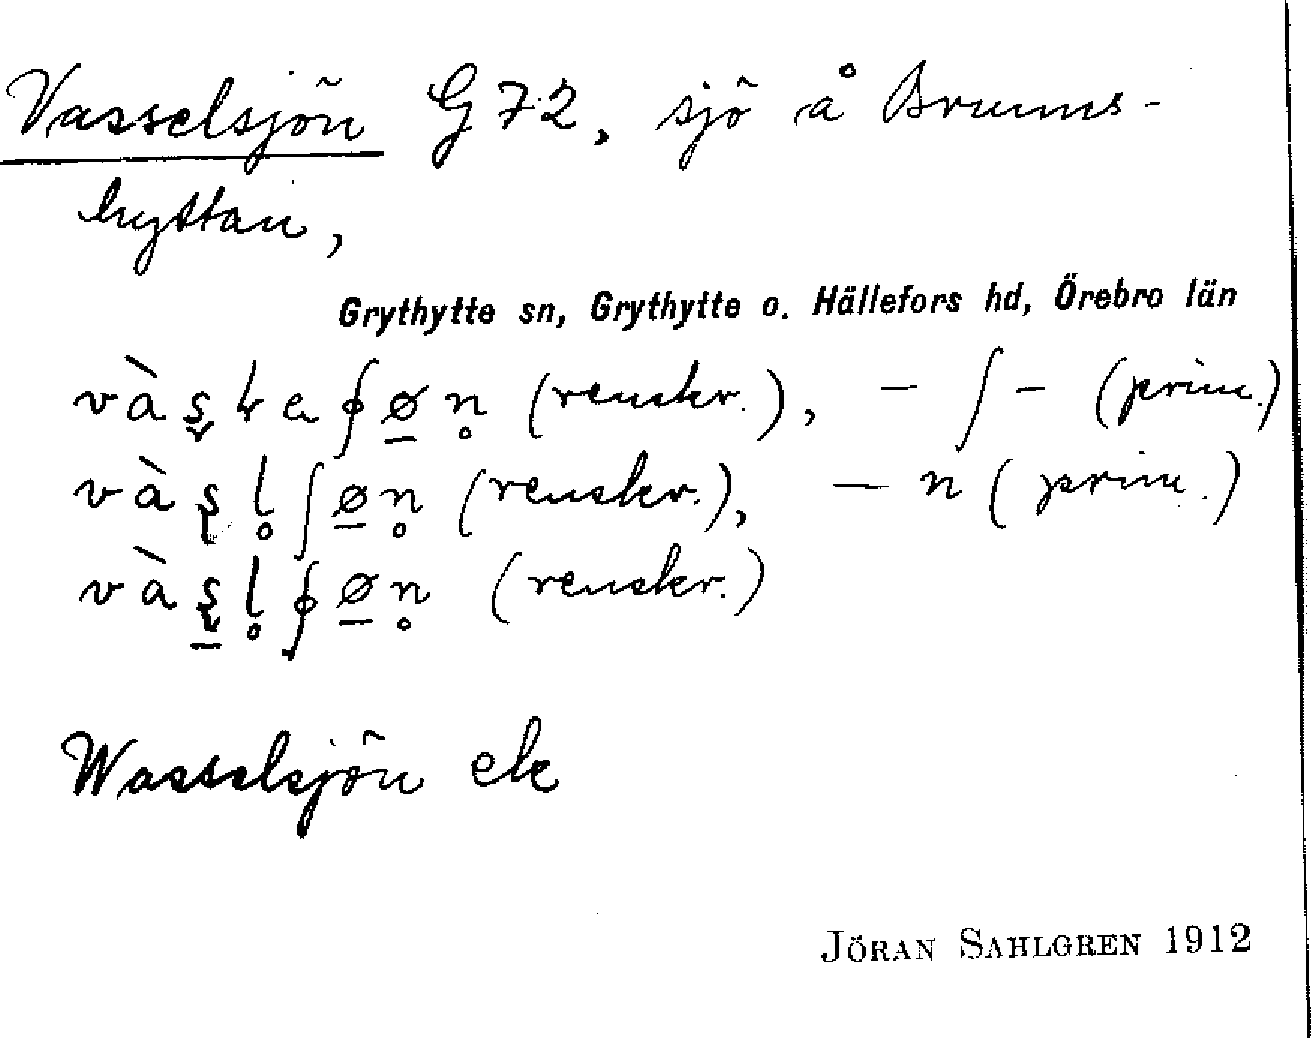 Vasselsjön G 72, sjö å Bruns-
hyttan,
Grythytte sn, Grythytte o. Hällefors hd, Örebro län
(renskr.), – ʃ – (prim.)
(renskr.), – n (prim.)
(renskr.)
Wasselsjön ek
JÖRAN SAHLGREN 1912